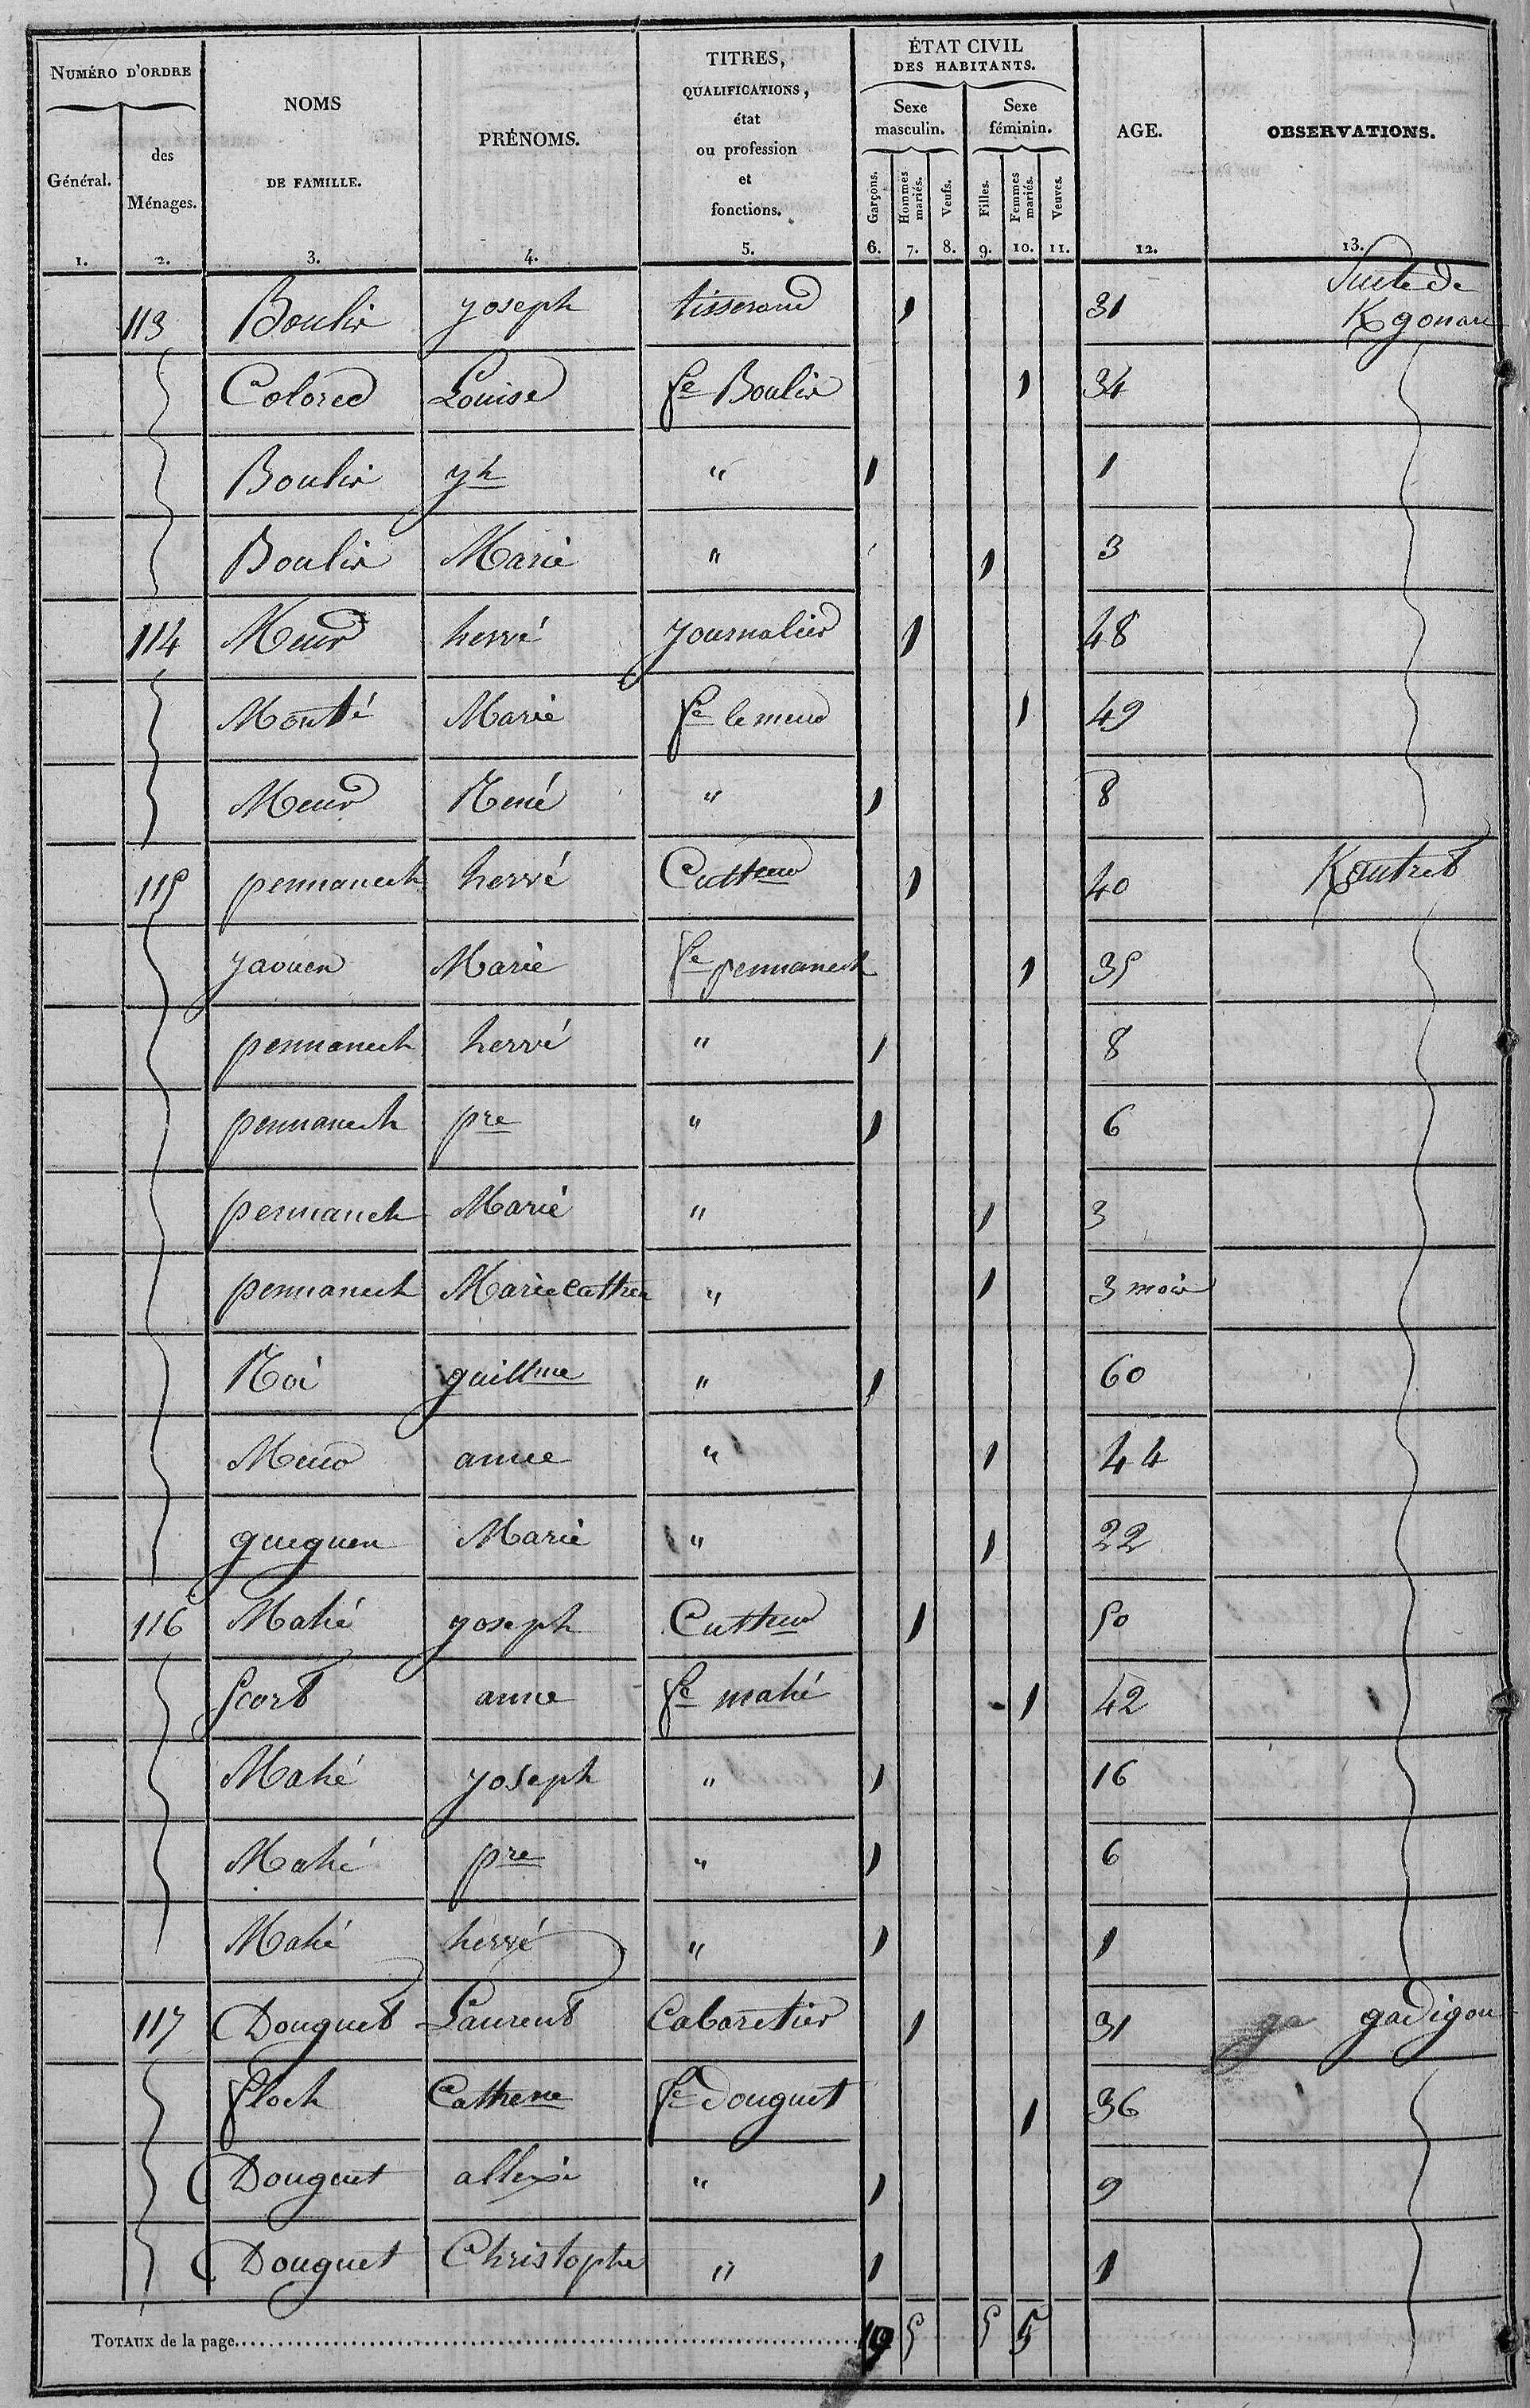 NUMÉRO D'ORDRE
Général.
des
Ménages.
NOMS
DE FAMILLE.
PRÉNOMS.
TITRES,
QUALIFICATIONS,
état
ou profession
et
fonctions.
ÉTAT CIVIL
DES HABITANTS.
Sexe
masculin.
Sexe
féminin.
Garçons.
Hommes
mariés.
Veufs.
Filles.
Femmes
mariés.
Veuves.
AGE.
OBSERVATIONS.
1. 2. 3. 4. 5. 6. 7. 8. 9. 10. 11. 12. 13.
Suite de
113 Boulic yoseph tisserand 1 31 Kgonare
Colored Louise fe Boulic 1 34
Boulic yh " 1 1
Boulic Marie " 1 3
114 Meur hervé journalier 1 48
Monté Marie fe le meur 1 49
Meur René " 1 8
115 pennanech hervé Cultteur 1 40 Kautret
yaouen Marie fe pennanech 1 35
pennanech hervé " 1 8
pennanech pre " 1 6
pennanech Marie " 1 3
pennanech Marie cathne " 1 3 mois
Roi guillme " 1 60
Meur anne " 1 44
gueguen Marie " 1 22
116 Mahé yoseph Cultteur 1 50
Scort anne fe mahé 1 42
Mahé yoseph " 1 16
Mahé pre " 1 6
Mahé hervé " 1 1
117 Douguet Laurent Cabaretier 1 31 ga gadigou
floch Cathene fe Douguet 1 36
Douguet allexis " 1 9
Douguet Christophe " 1 1
TOTAUX de la page 10 5 5 5